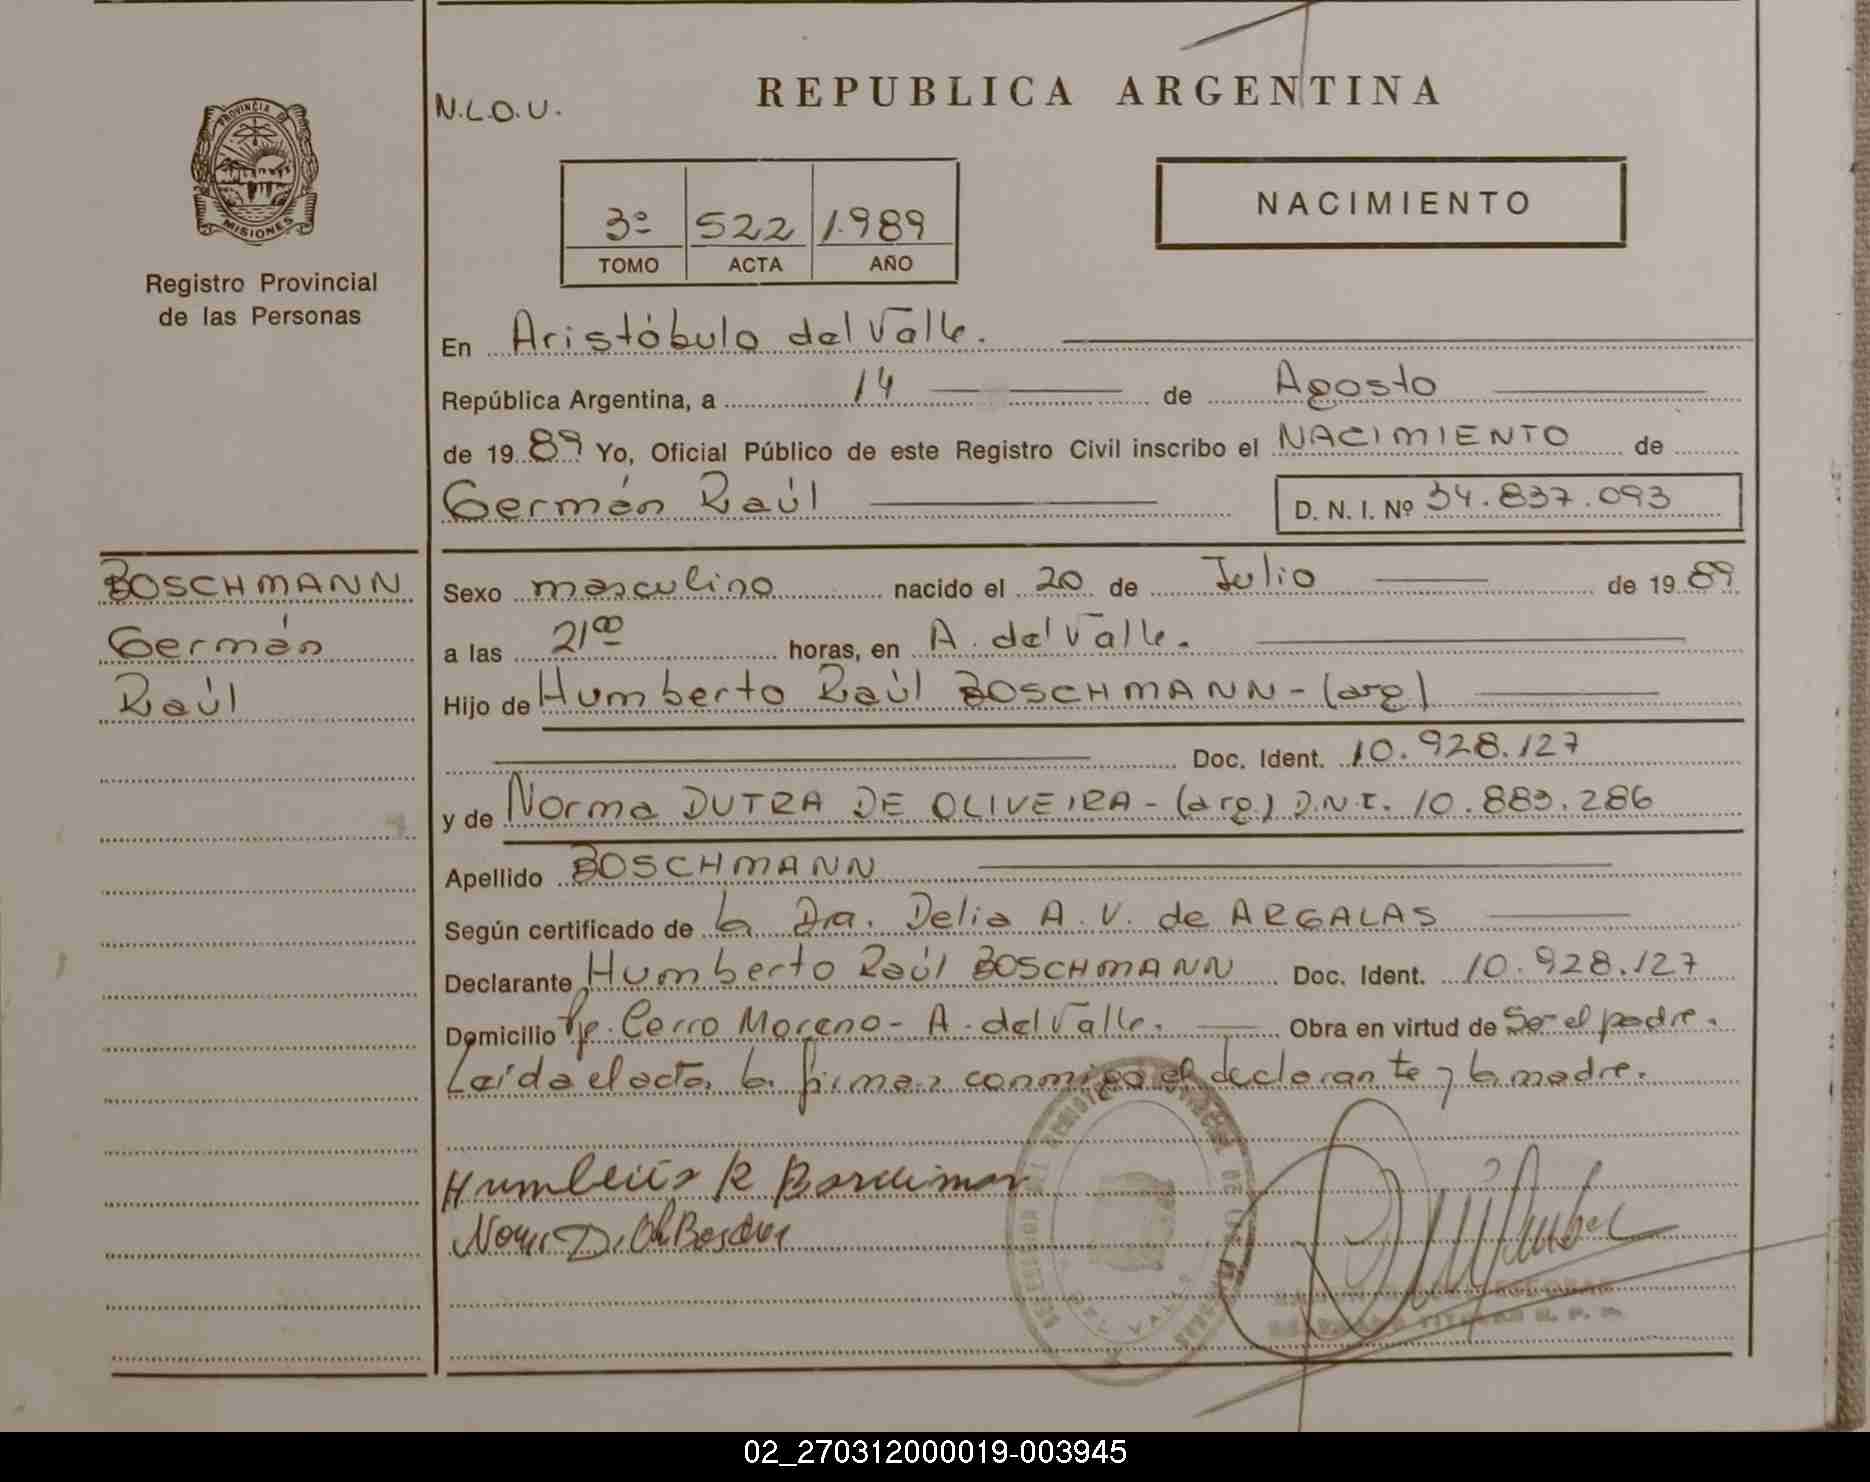 REPUBLICA ARGENTINA
N.L.O.U.
PROVINCIA DE
MISIONES
Registro Provincial
de las Personas
3º 522 1.989
TOMO ACTA AÑO
NACIMIENTO
En Aristóbulo del Valle.
República Argentina, a 14 de Agosto
de 1989 Yo, Oficial Público de este Registro Civil inscribo el NACIMIENTO de
Germán Raúl D. N. I. Nº 34.837.093
BOSCHMANN
Germán
Raúl
Sexo masculino nacido el 20 de Julio de 1989
a las 21⁰⁰ horas, en A. del Valle.
Hijo de Humberto Raúl BOSCHMANN - (arg)
Doc. Ident. 10.928.127
y de Norma DUTRA DE OLIVEIRA - (arg.) D.N.I. 10.883.286
Apellido BOSCHMANN
Según certificado de la Dra. Delia A. V. de ARGALAS
Declarante Humberto Raúl BOSCHMANN Doc. Ident. 10.928.127
Domicilio Pje. Cerro Moreno - A. del Valle. Obra en virtud de Ser el padre.
Leída el acta, la firman conmigo el declarante y la madre.
Humberto R
02_270312000019-003945